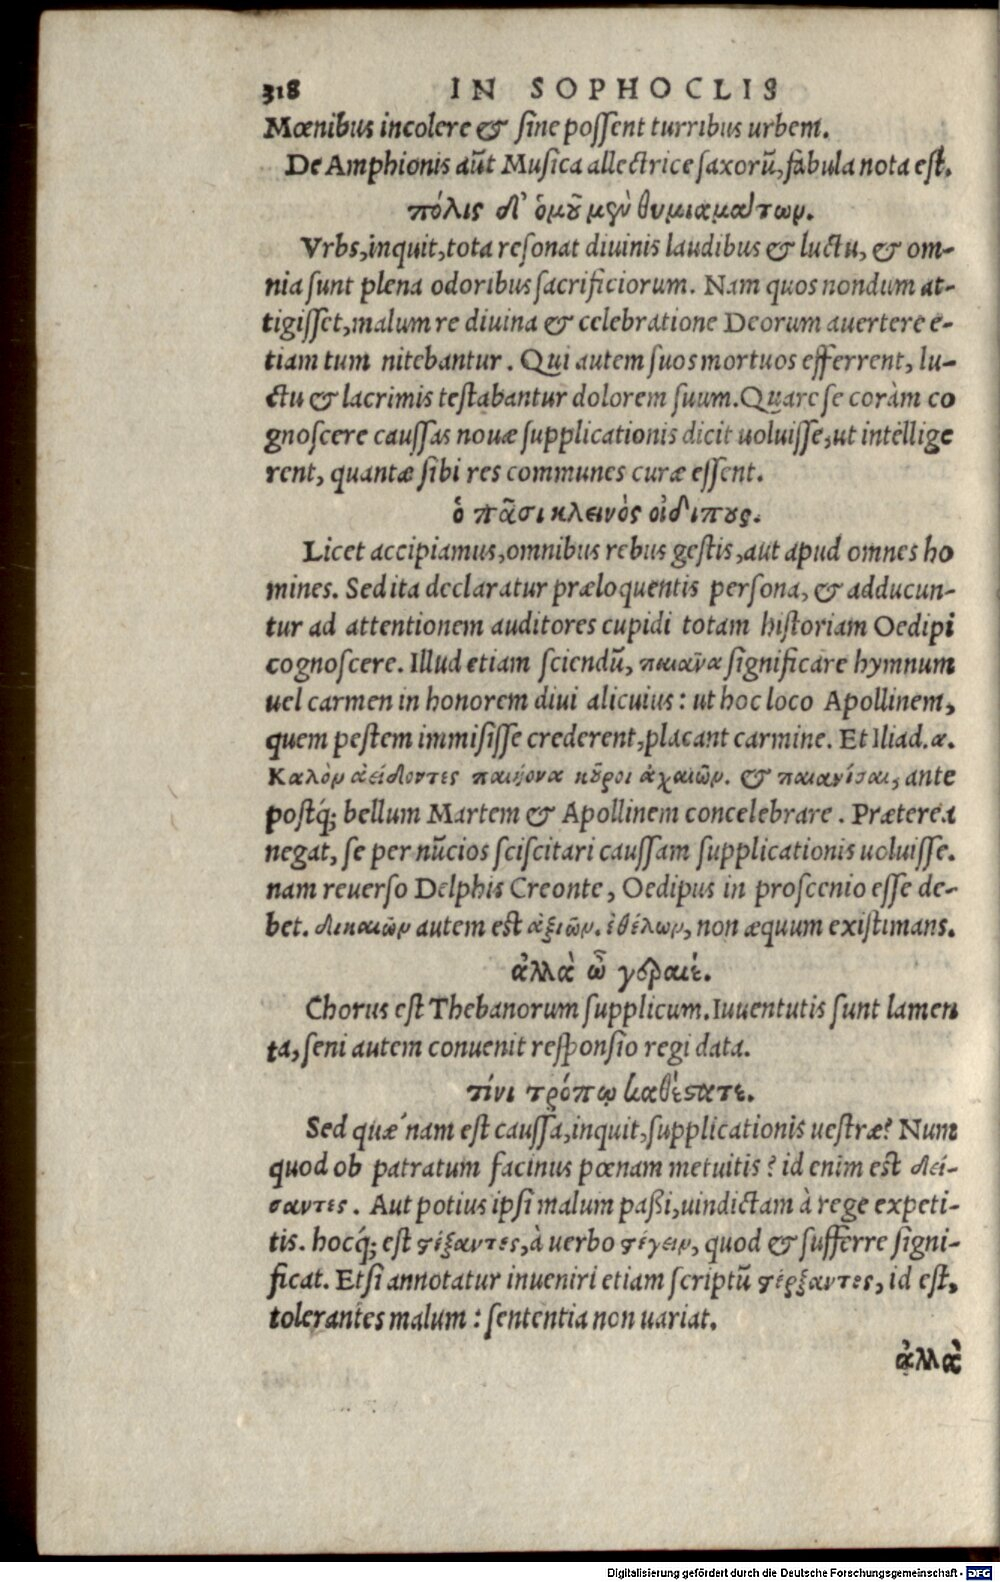 318 IN SOPHOCLIS
Mœnibus incolere & sine possent turribus urbem.
De Amphionis aũt Musica allectrice saxorũ, fabula nota est.
πόλις δ' ὁμοῦ μὲν θυμιαμάτων.
Vrbs, inquit, tota resonat diuinis laudibus & luctu, & om-
nia sunt plena odoribus sacrificiorum. Nam quos nondum at-
tigisset, malum re diuina & celebratione Deorum auertere e-
tiam tum nitebantur. Qui autem suos mortuos efferrent, lu-
ctu & lacrimis testabantur dolorem suum. Quare se coràm co
gnoscere caussas nouæ supplicationis dicit uoluisse, ut intellige
rent, quantæ sibi res communes curæ essent.
ὁ πᾶσι κλεινὸς οἰδίπους.
Licet accipiamus, omnibus rebus gestis, aut apud omnes ho
mines. Sed ita declaratur præloquentis persona, & adducun-
tur ad attentionem auditores cupidi totam historiam Oedipi
cognoscere. Illud etiam sciendũ, παιᾶνα significare hymnum
uel carmen in honorem diui alicuius: ut hoc loco Apollinem,
quem pestem immisisse crederent, placant carmine. Et Iliad. α.
Καλὸν ἀείδοντες παιήονα κοῦροι ἀχαιῶν. & παιανίσαι, ante
postq́; bellum Martem & Apollinem concelebrare. Præterea
negat, se per nũcios sciscitari caussam supplicationis uoluisse.
nam reuerso Delphis Creonte, Oedipus in proscenio esse de-
bet. δικαιῶν autem est ἀξιῶν. ἐθέλων, non æquum existimans.
ἀλλὰ ὦ γεραιέ.
Chorus est Thebanorum supplicum. Iuuentutis sunt lamen
ta, seni autem conuenit responsio regi data.
τίνι τρόπῳ καθέστατε.
Sed quæ nam est caussa, inquit, supplicationis uestræ? Num
quod ob patratum facinus pœnam metuitis? id enim est δεί-
σαντες. Aut potius ipsi malum paßi, uindictam à rege expeti-
tis. hocq́; est στέξαντες, à uerbo στέγειν, quod & sufferre signi-
ficat. Etsi annotatur inueniri etiam scriptũ στέρξαντες, id est,
tolerantes malum: sententia non uariat.
ἀλλὰ
Digitalisierung gefördert durch die Deutsche Forschungsgemeinschaft - DFG